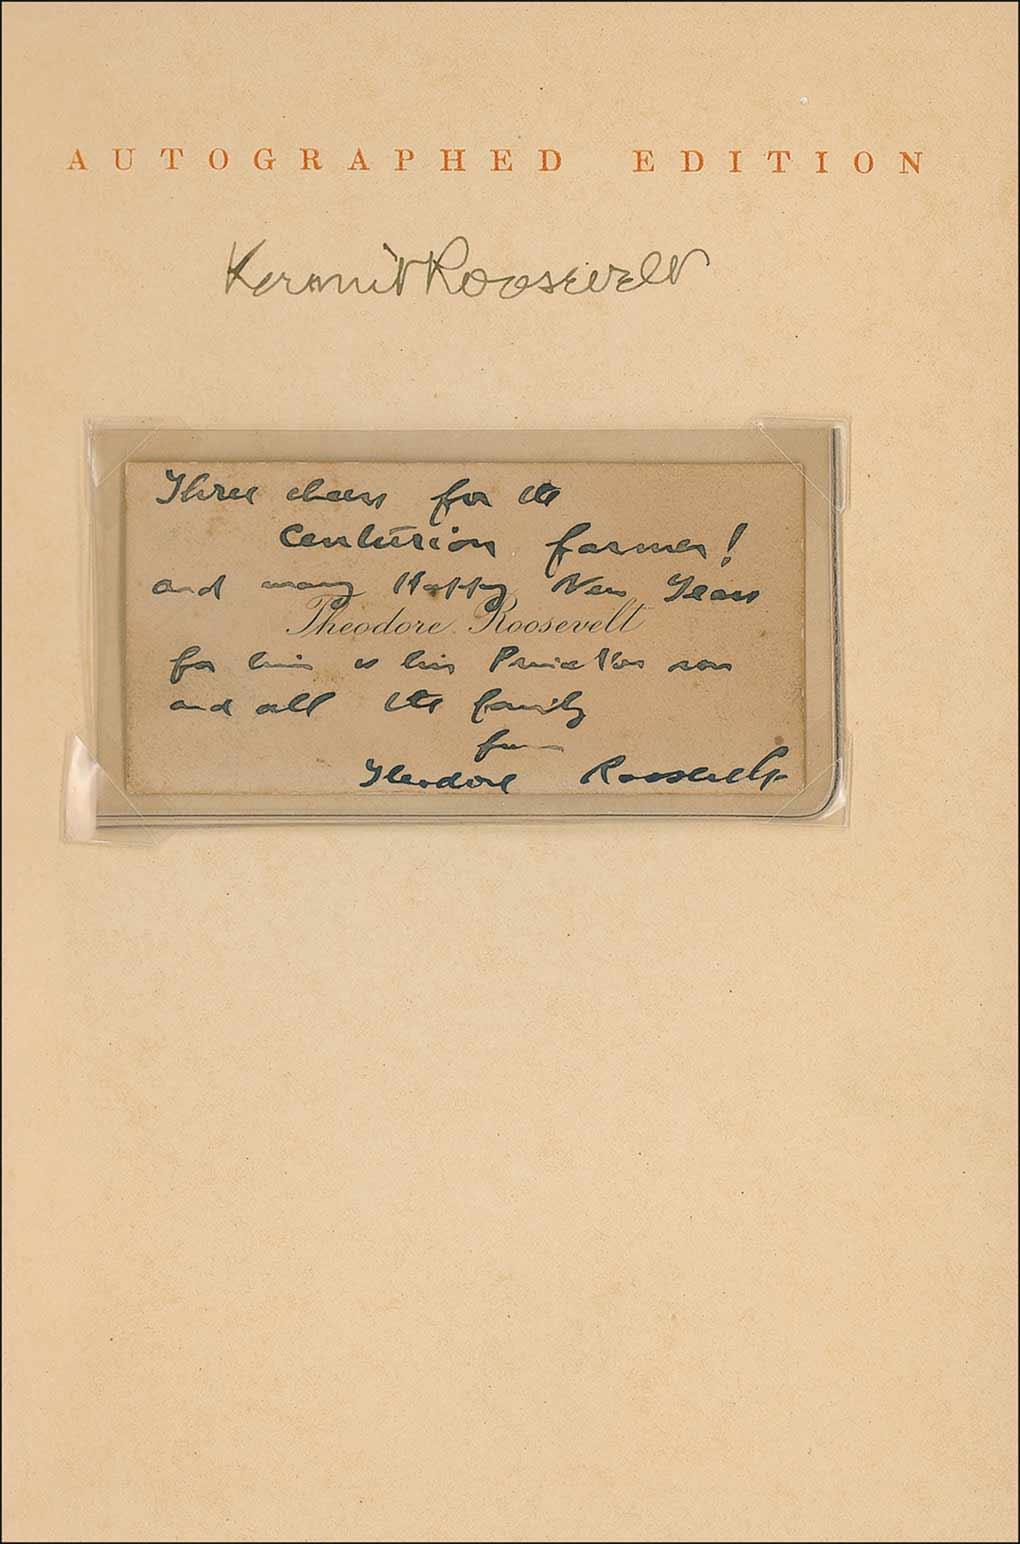 AUTOGRAPHED EDITION
Kermit Roosevelt
Three cheers for the
Centurion farmer!
and many Happy New Years
Theodore Roosevelt
for him & his Princeton son
and all the family
from
Theodore Roosevelt